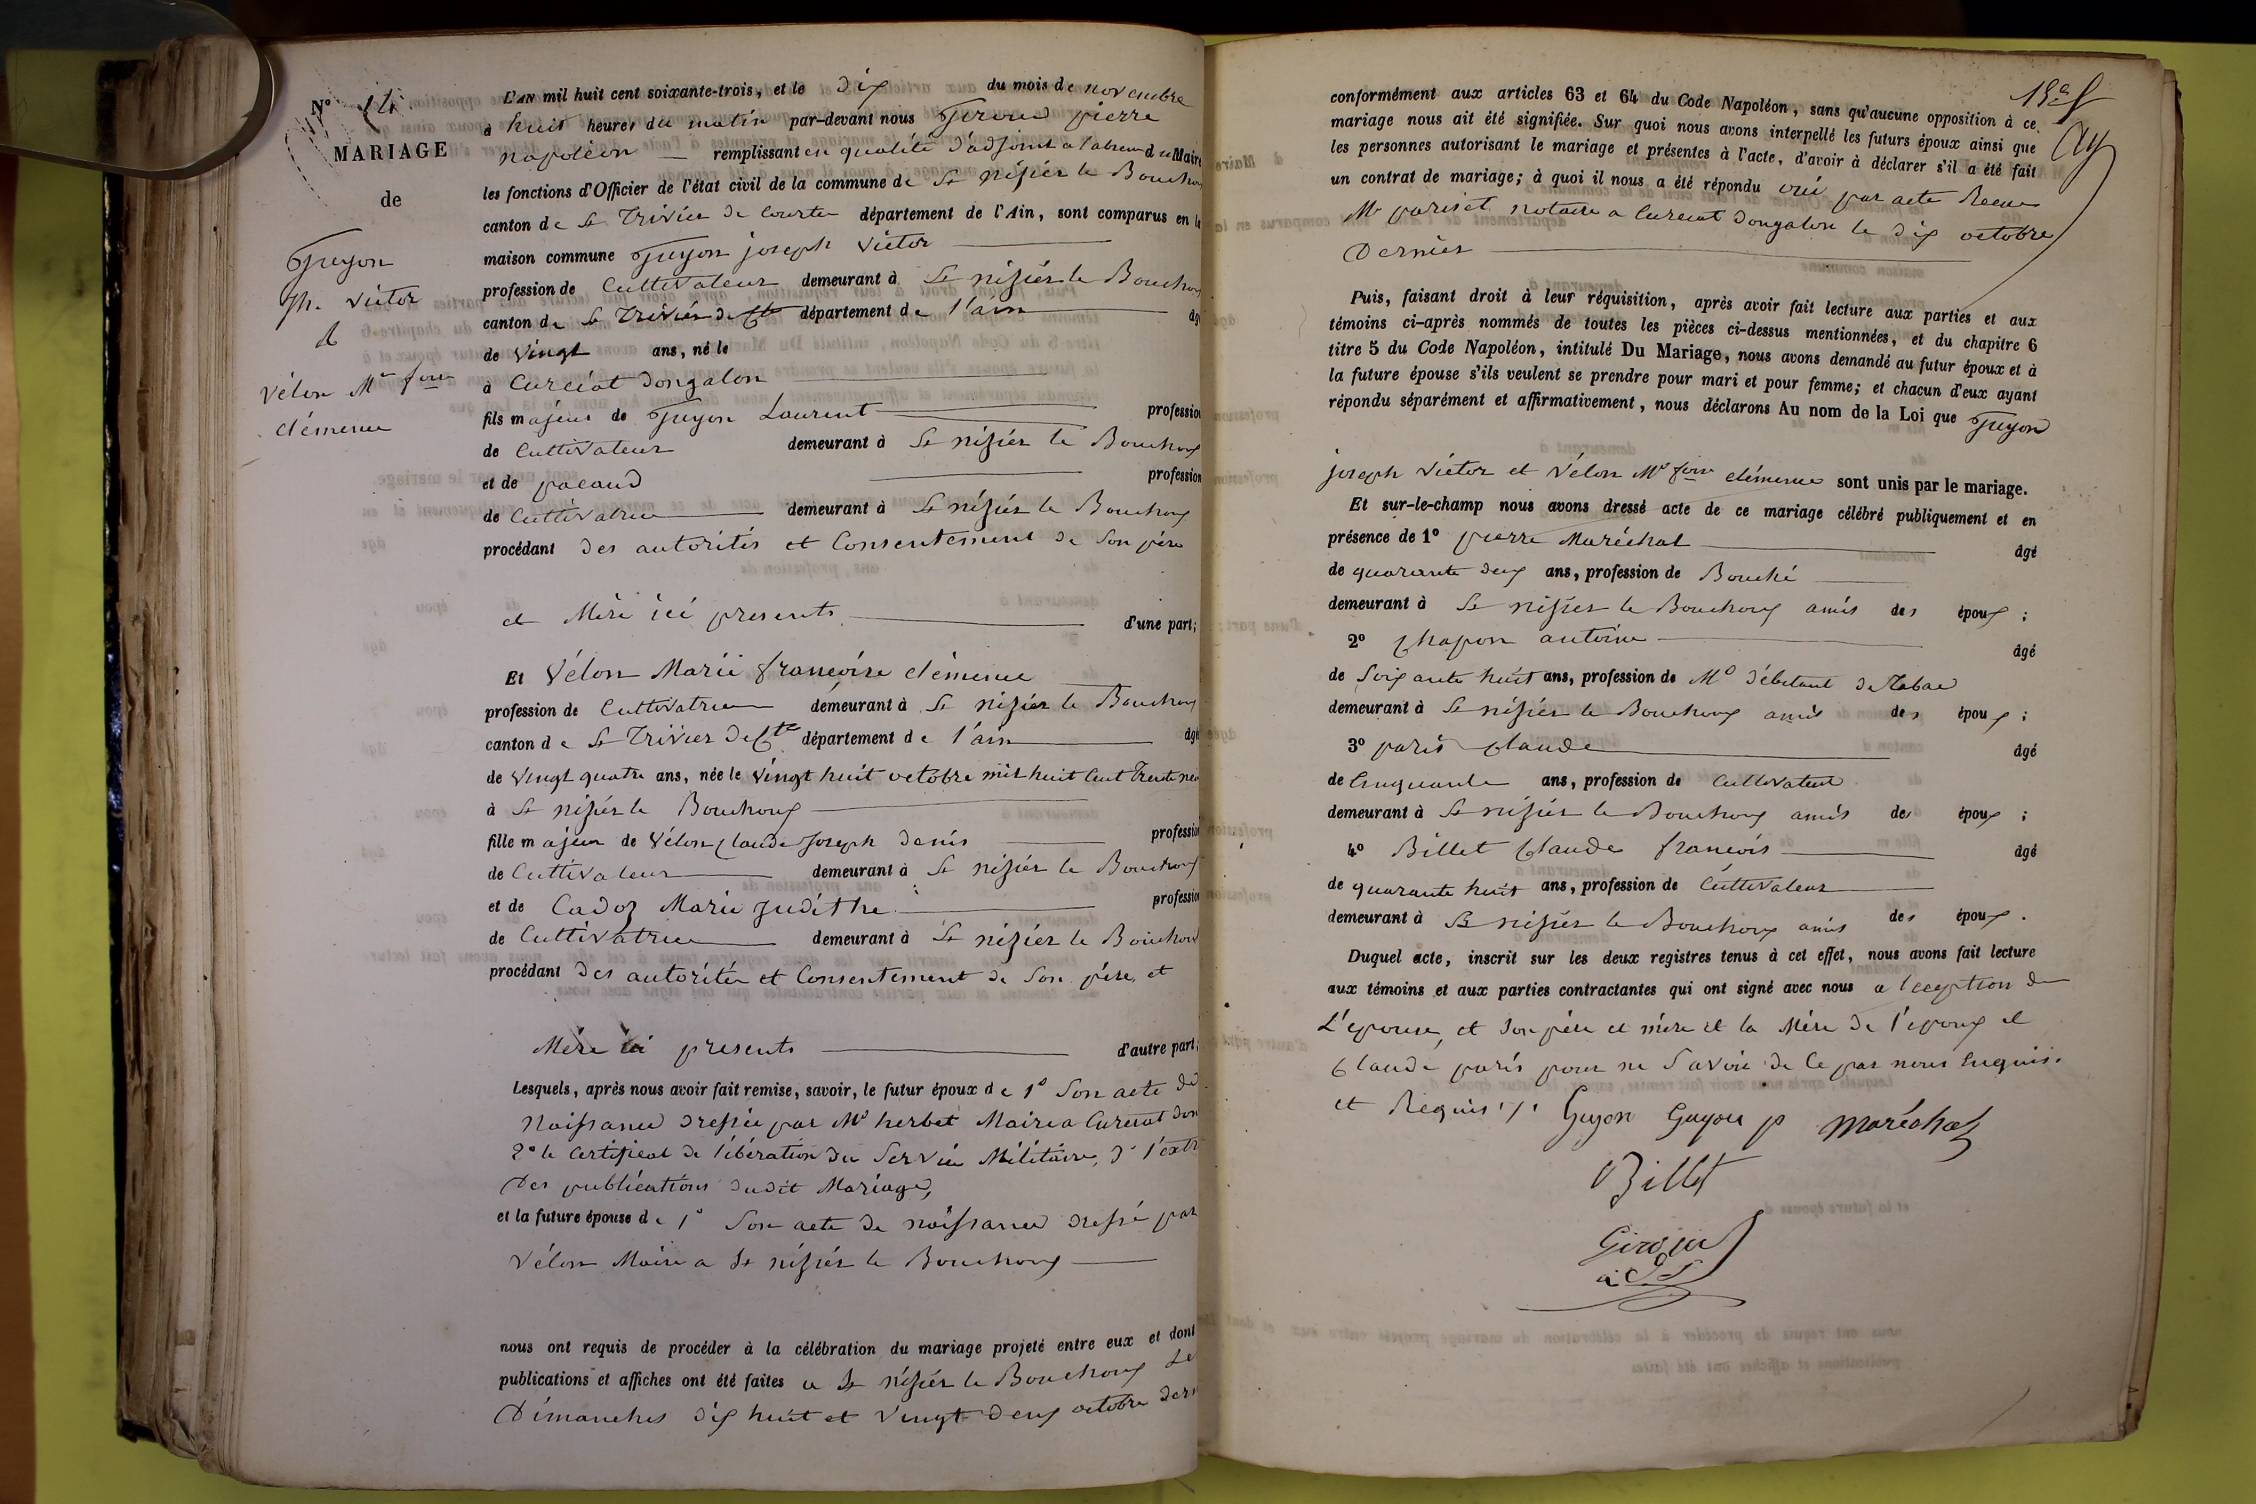 N° 14
MARIAGE
de
Guyon
Jh. Victor
&
Vélon Mie foise
clémence
L'AN mil huit cent soixante-trois, et le dix du mois de novembre
à huit heures du matin par-devant nous Giroud pierre
napoléon — remplissant en qualité d'adjoint a l'absence du Maire
les fonctions d'Officier de l'état civil de la commune de St nizier le Bouchoux
canton de St Trivier de Courtes département de l'Ain, sont comparus en la
maison commune Guyon joseph Victor
profession de Cultivateur demeurant à St nizier le Bouchoux
canton de St Trivier de Ctes département de l'ain âgé
de Vingt ans, né le
à Curciat dongalon
fils majeur de Guyon Laurent profession
de Cultivateur demeurant à St nizier le Bouchoux
et de pacaud profession
de Cultivatrice demeurant à St nizier le Bouchoux
procédant des autorités et Consentement de Son père
et Mère ici presents d'une part;
Et Vélon Marie francoise clémence
profession de Cultivatrice demeurant à St nizier le Bouchoux
canton de St Trivier de Ctes département de l'ain âgé
de Vingt quatre ans, née le Vingt huit octobre mil huit Cent Trente neu
à St nizier le Bouchoux
fille majeur de Vélon Claude Joseph denis profession
de Cultivateur demeurant à St nizier le Bouchoux
et de Cadoz Marie Judithe profession
de Cultivatrice demeurant à St nizier le Bouchoux
procédant des autorités et Consentement de Son père, et
Mère ici presents d'autre part;
Lesquels, après nous avoir fait remise, savoir, le futur époux de 1° Son acte de
Naissance dressée par Mr herbet Maire a Curciat don
2° le Certificat de libération du Service Militaire, 3° l'extr
Des publications dudit Mariage,
et la future épouse de 1° Son acte de naissance dressé par
Vélon Maire a St nizier le Bouchoux
nous ont requis de procéder à la célébration du mariage projeté entre eux et dont
publications et affiches ont été faites a St nizier le Bouchoux Le
Dimanches dix huit et Vingt deux octobre dern
conformément aux articles 63 et 64 du Code Napoléon, sans qu'aucune opposition à ce
mariage nous ait été signifiée. Sur quoi nous avons interpellé les futurs époux ainsi que
les personnes autorisant le mariage et présentes à l'acte, d'avoir à déclarer s'il a été fait
un contrat de mariage; à quoi il nous a été répondu oui par acte Recue
Me pariset notaire a Curciat dongalon le dix octobre
Dernier
Puis, faisant droit à leur réquisition, après avoir fait lecture aux parties et aux
témoins ci-après nommés de toutes les pièces ci-dessus mentionnées, et du chapitre 6
titre 5 du Code Napoléon, intitulé Du Mariage, nous avons demandé au futur époux et à
la future épouse s'ils veulent se prendre pour mari et pour femme; et chacun d'eux ayant
répondu séparément et affirmativement, nous déclarons Au nom de la Loi que Guyon
joseph Victor et Vélon Mie foise clémence sont unis par le mariage.
Et sur-le-champ nous avons dressé acte de ce mariage célébré publiquement et en
présence de 1° pierre Maréchal âgé
de quarante deux ans, profession de Bouché
demeurant à St nizier le Bouchoux amis des époux;
2° Chapon antoine âgé
de Soixante huit ans, profession de Md débitant de Tabac
demeurant à St nizier le Bouchoux amis des époux;
3° paris Claude âgé
de Cinquante ans, profession de Cultivateur
demeurant à St nizier le Bouchoux amis des époux;
4° Billet Claude francois âgé
de quarante huit ans, profession de Cultivateur
demeurant à St nizier le Bouchoux amis des époux.
Duquel acte, inscrit sur les deux registres tenus à cet effet, nous avons fait lecture
aux témoins et aux parties contractantes qui ont signé avec nous a l'ception de
L'epouse, et son père et mère et la Mère de l'epoux et
Claude paris pour ne Savoir de Ce par nous Enquis.
et Requis ./.
Guyon Guyon p Maréchal
Billet
Giroud